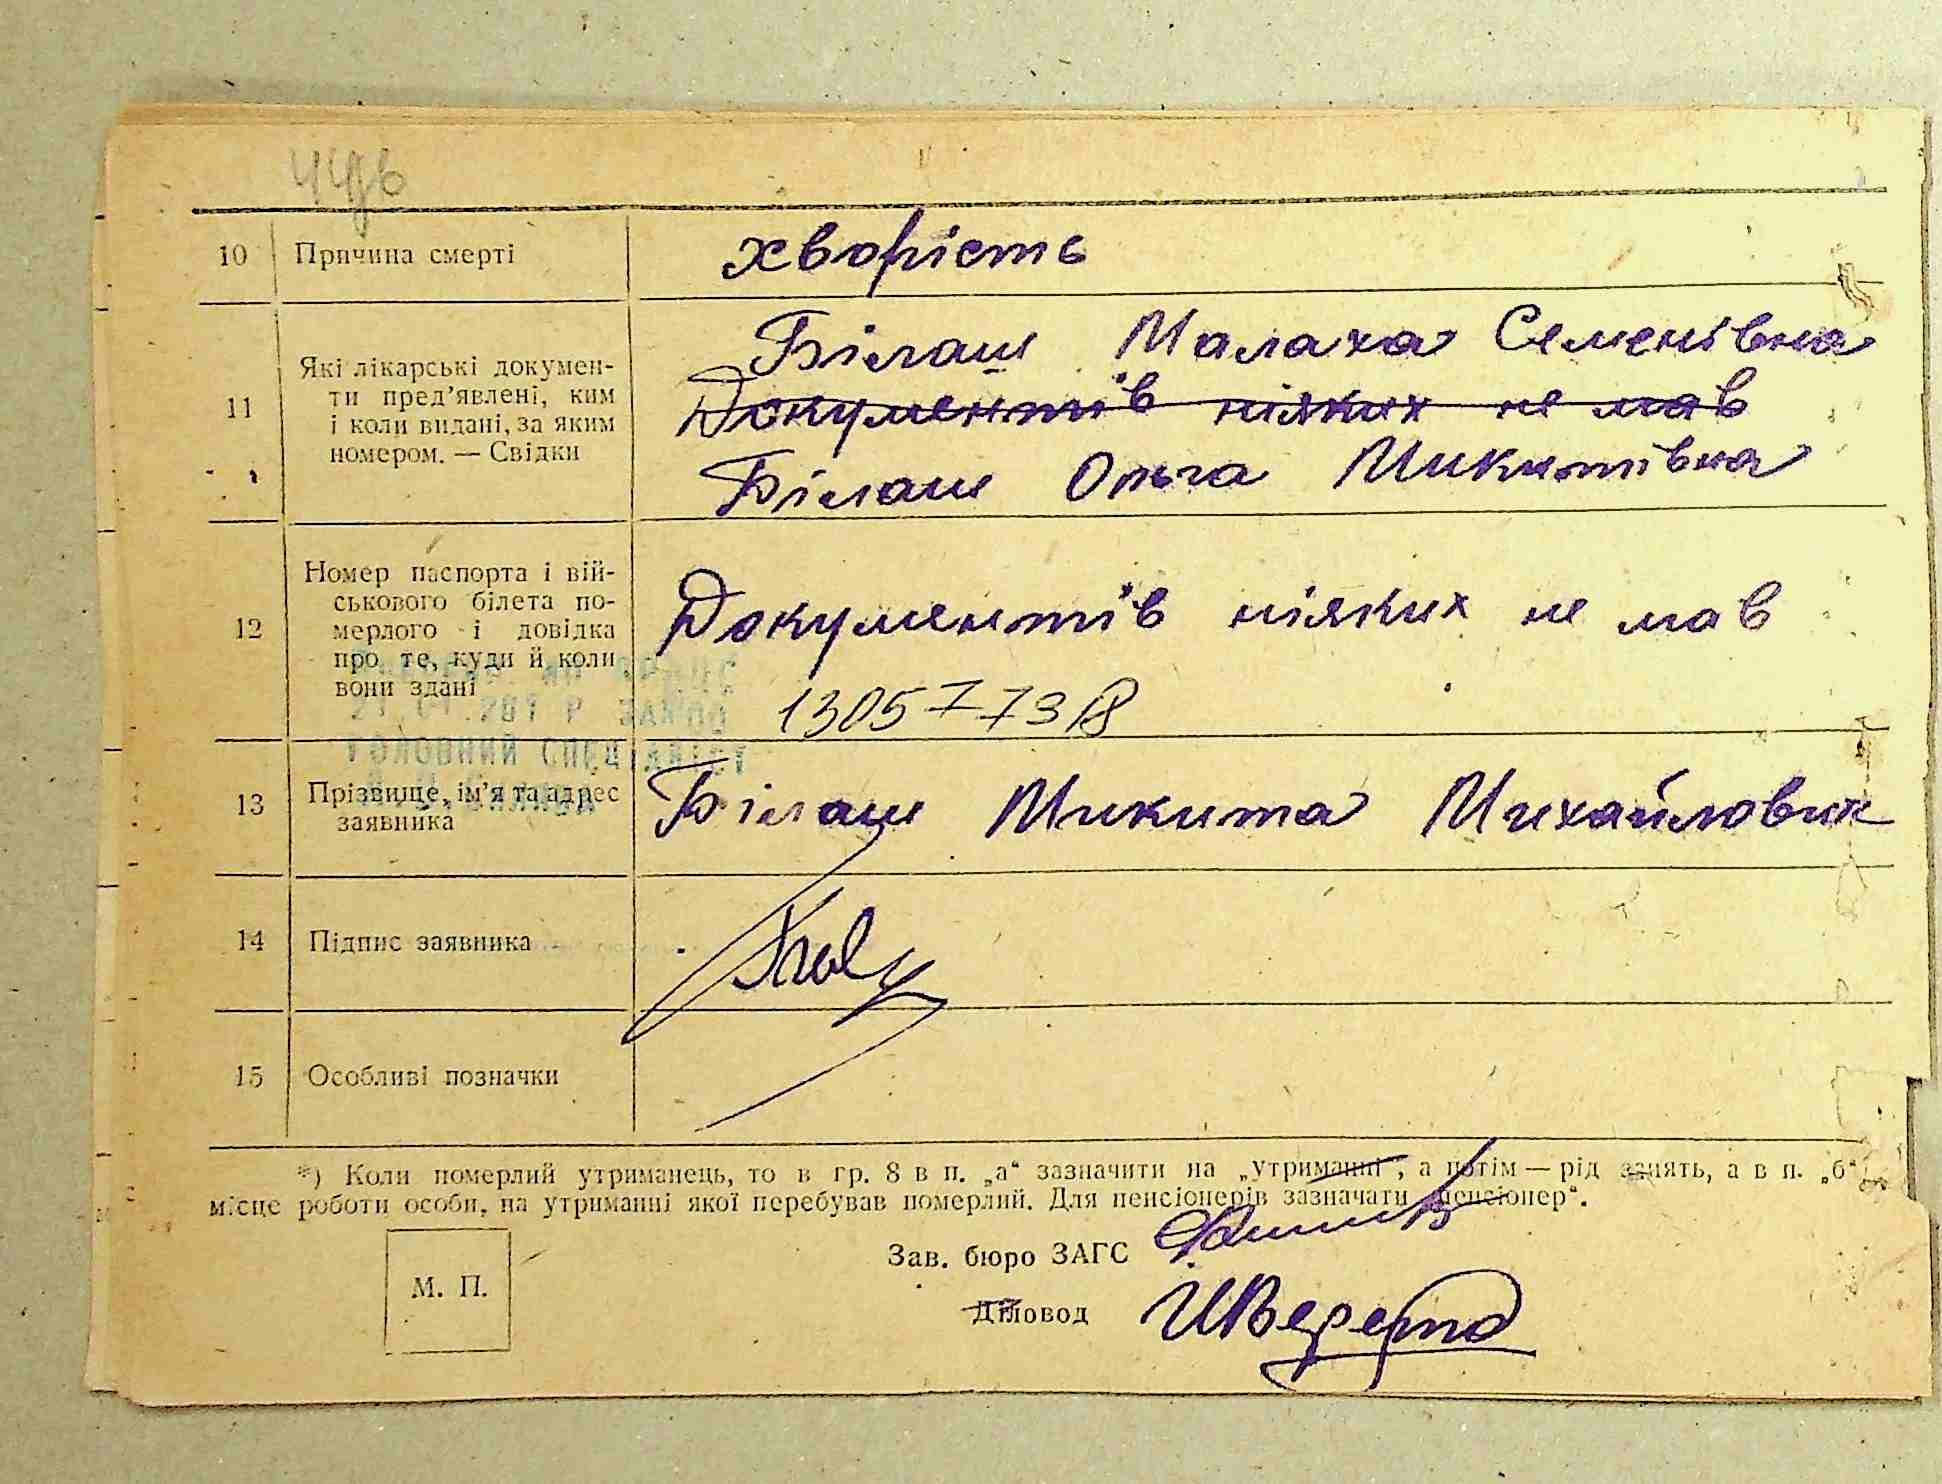 10 Причина смерті хворість
11 Які лікарські докумен-
ти пред'явлені, ким
і коли видані, за яким
номером. — Свідки
Білаш Малаха Семенівна
Документів ніяких не мав
Білаш Ольга Микитівна
12 Номер паспорта і вій-
ськового білета по-
мерлого і довідка
про те, куди й коли
вони здані
Документів ніяких не мав
13057738
ГОЛОВНИЙ СПЕЦІАЛІСТ
13 Прізвище, ім'я та адрес
заявника
Білаш Микита Михайлович
14 Підпис заявника
15 Особливі позначки
*) Коли померлий утриманець, то в гр. 8 в п. „а“ зазначити на „утриманні“, а потім — рід занять, а в п. „б“
місце роботи особи, на утриманні якої перебував померлий. Для пенсіонерів зазначати „пенсіонер“.
Зав. бюро ЗАГС
М. П.
Діловод